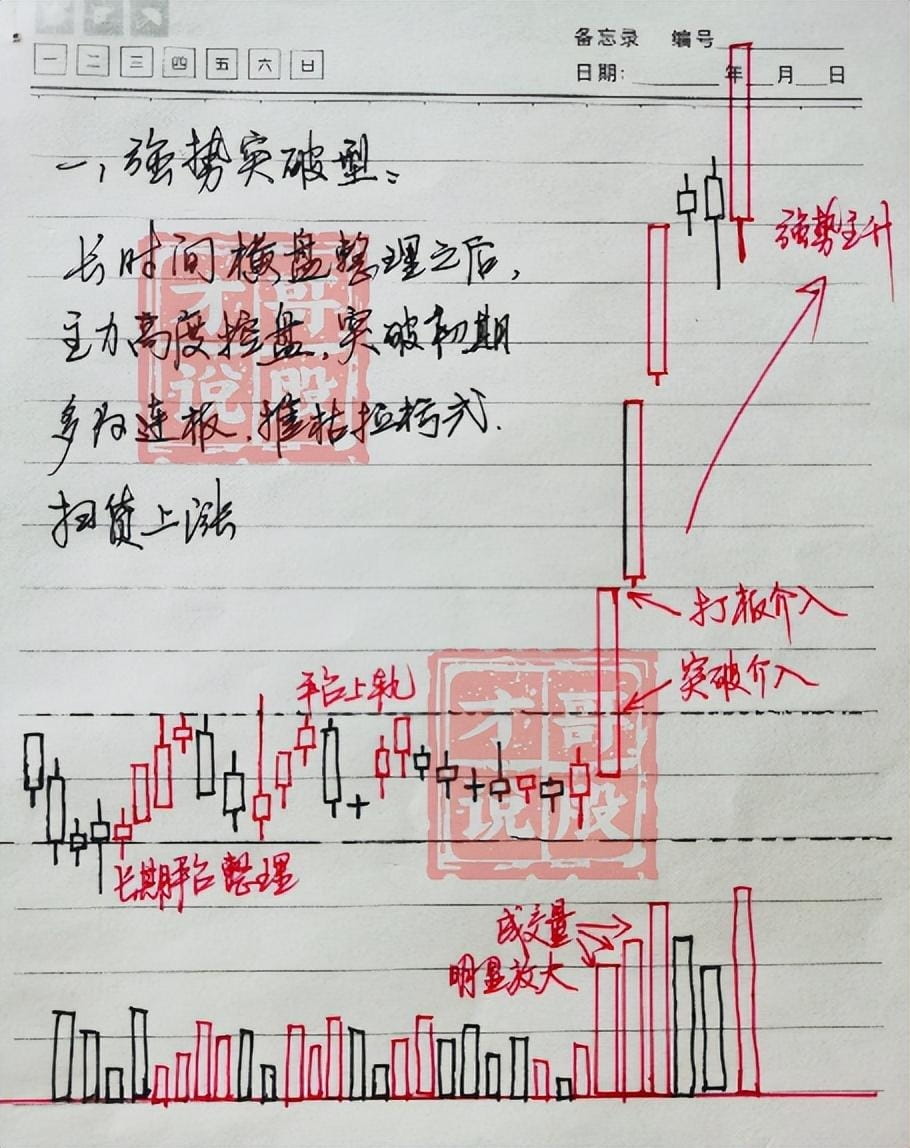 一 二 三 四 五 六 日
备忘录 编号
日期: 年 月 日
一、强势突破型:
长时间横盘整理之后,
主力高度控盘,突破初期
多为连板、摧枯拉朽式.
扫货上涨
才哥
说股
强势主升
打板介入
突破介入
平台上轨
才哥
说股
长期平台整理
成交量
明显放大